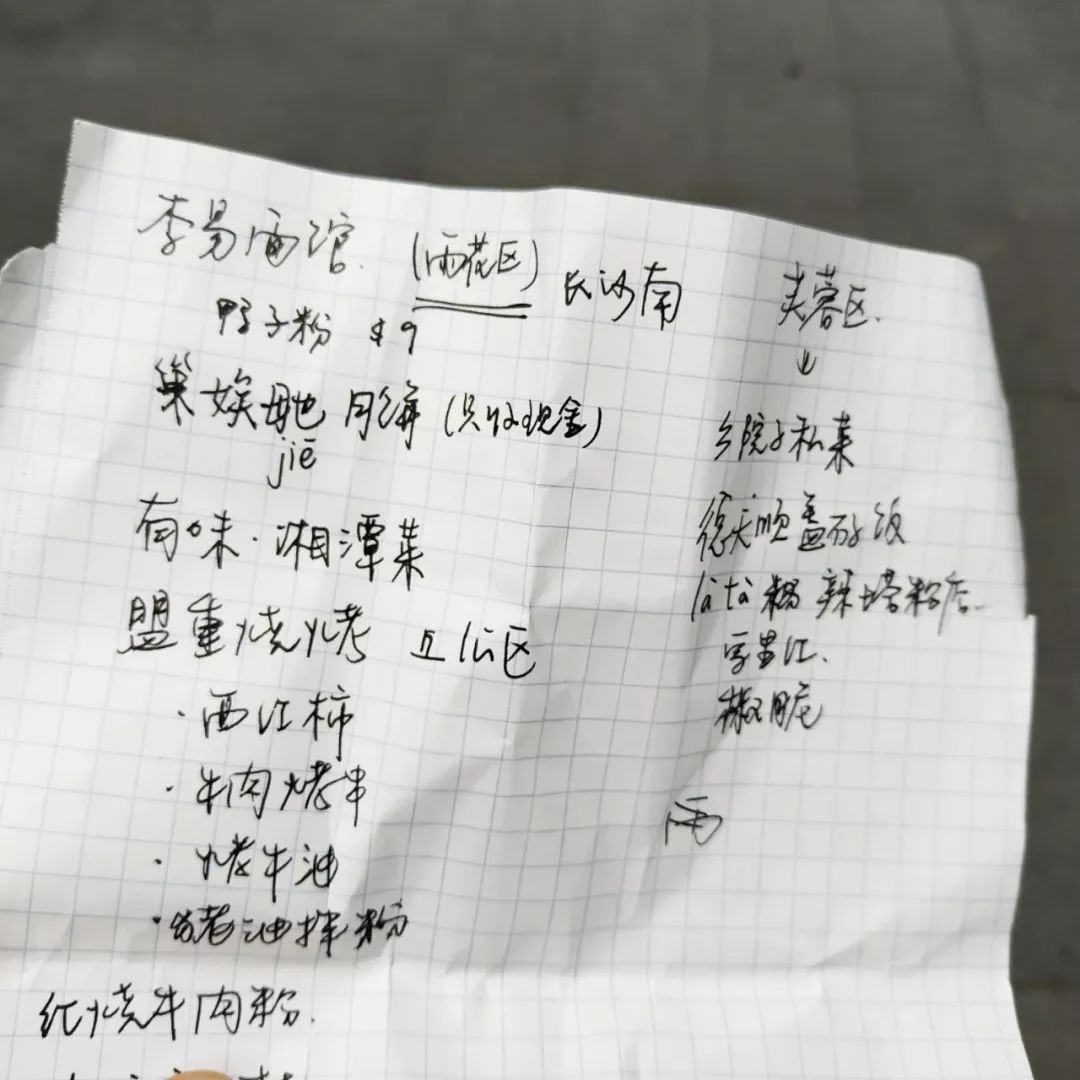 李易面馆.（雨花区）长沙南
鸭子粉 $9
巢娭毑 月饼（只收现金）
jiē
有味·湘潭菜
盟重烧烤 五公区
·西江柿
·牛肉烤串
·烤牛油
·猪油拌粉
红烧牛肉粉.
芙蓉区.
↓
乡院子私菜
德天顺盖码饭
là tà 糊 辣塔粉店
雨